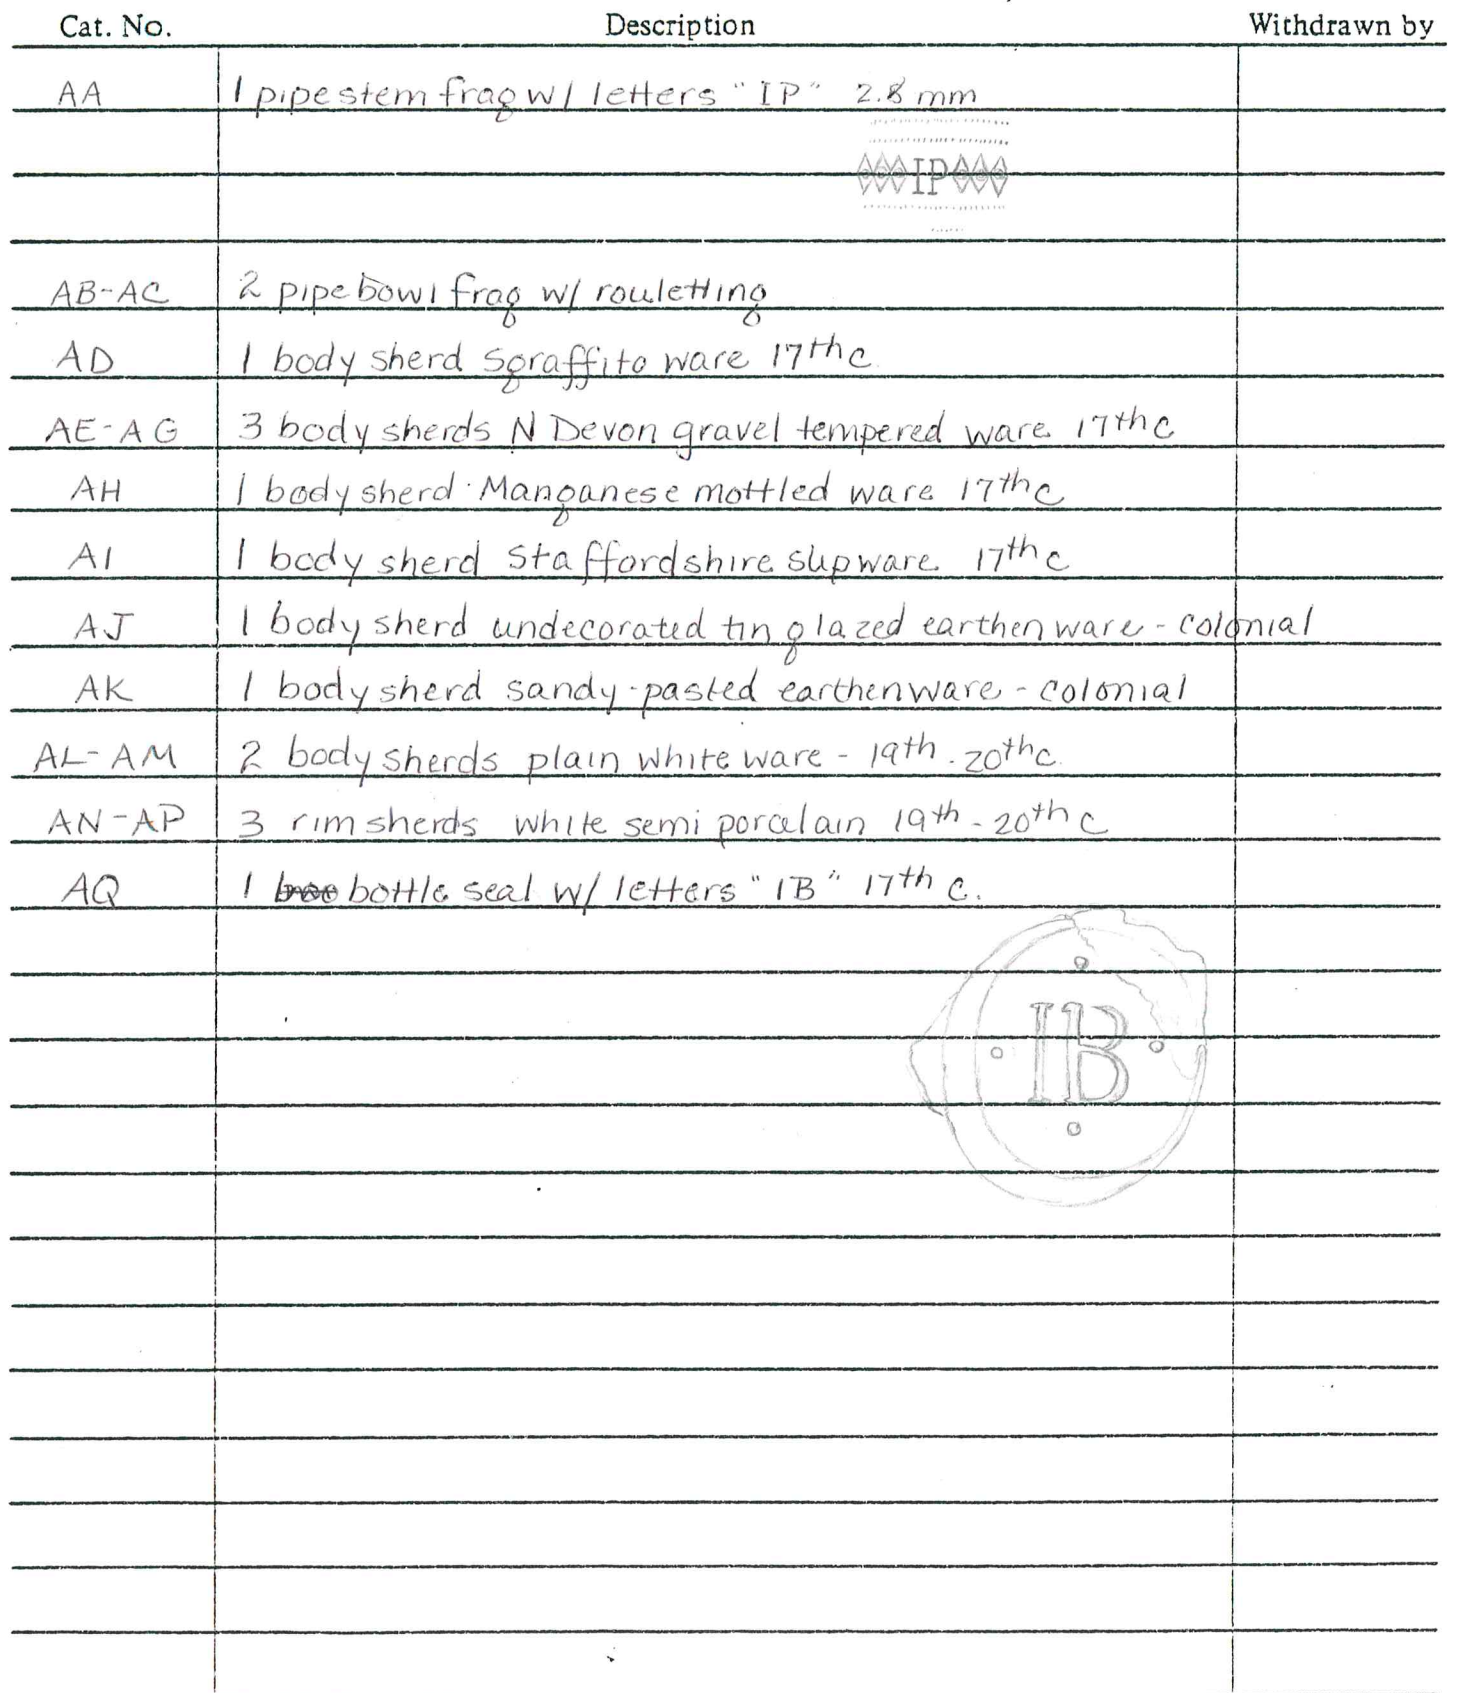 Cat. No. Description Withdrawn by
AA 1 pipestem frag w/ letters "IP" 2.8 mm
IP
AB-AC 2 pipe bowl frag w/ rouletting
AD 1 body sherd Sgraffito ware 17th c
AE-AG 3 body sherds N Devon gravel tempered ware 17th c
AH 1 body sherd Manganese mottled ware 17th c
AI 1 body sherd Staffordshire slipware 17th c
AJ 1 body sherd undecorated tin glazed earthenware - colonial
AK 1 body sherd sandy-pasted earthenware - colonial
AL-AM 2 body sherds plain white ware - 19th - 20th c
AN-AP 3 rim sherds white semi porcelain 19th - 20th c
AQ 1 bottle seal w/ letters "IB" 17th c.
IB